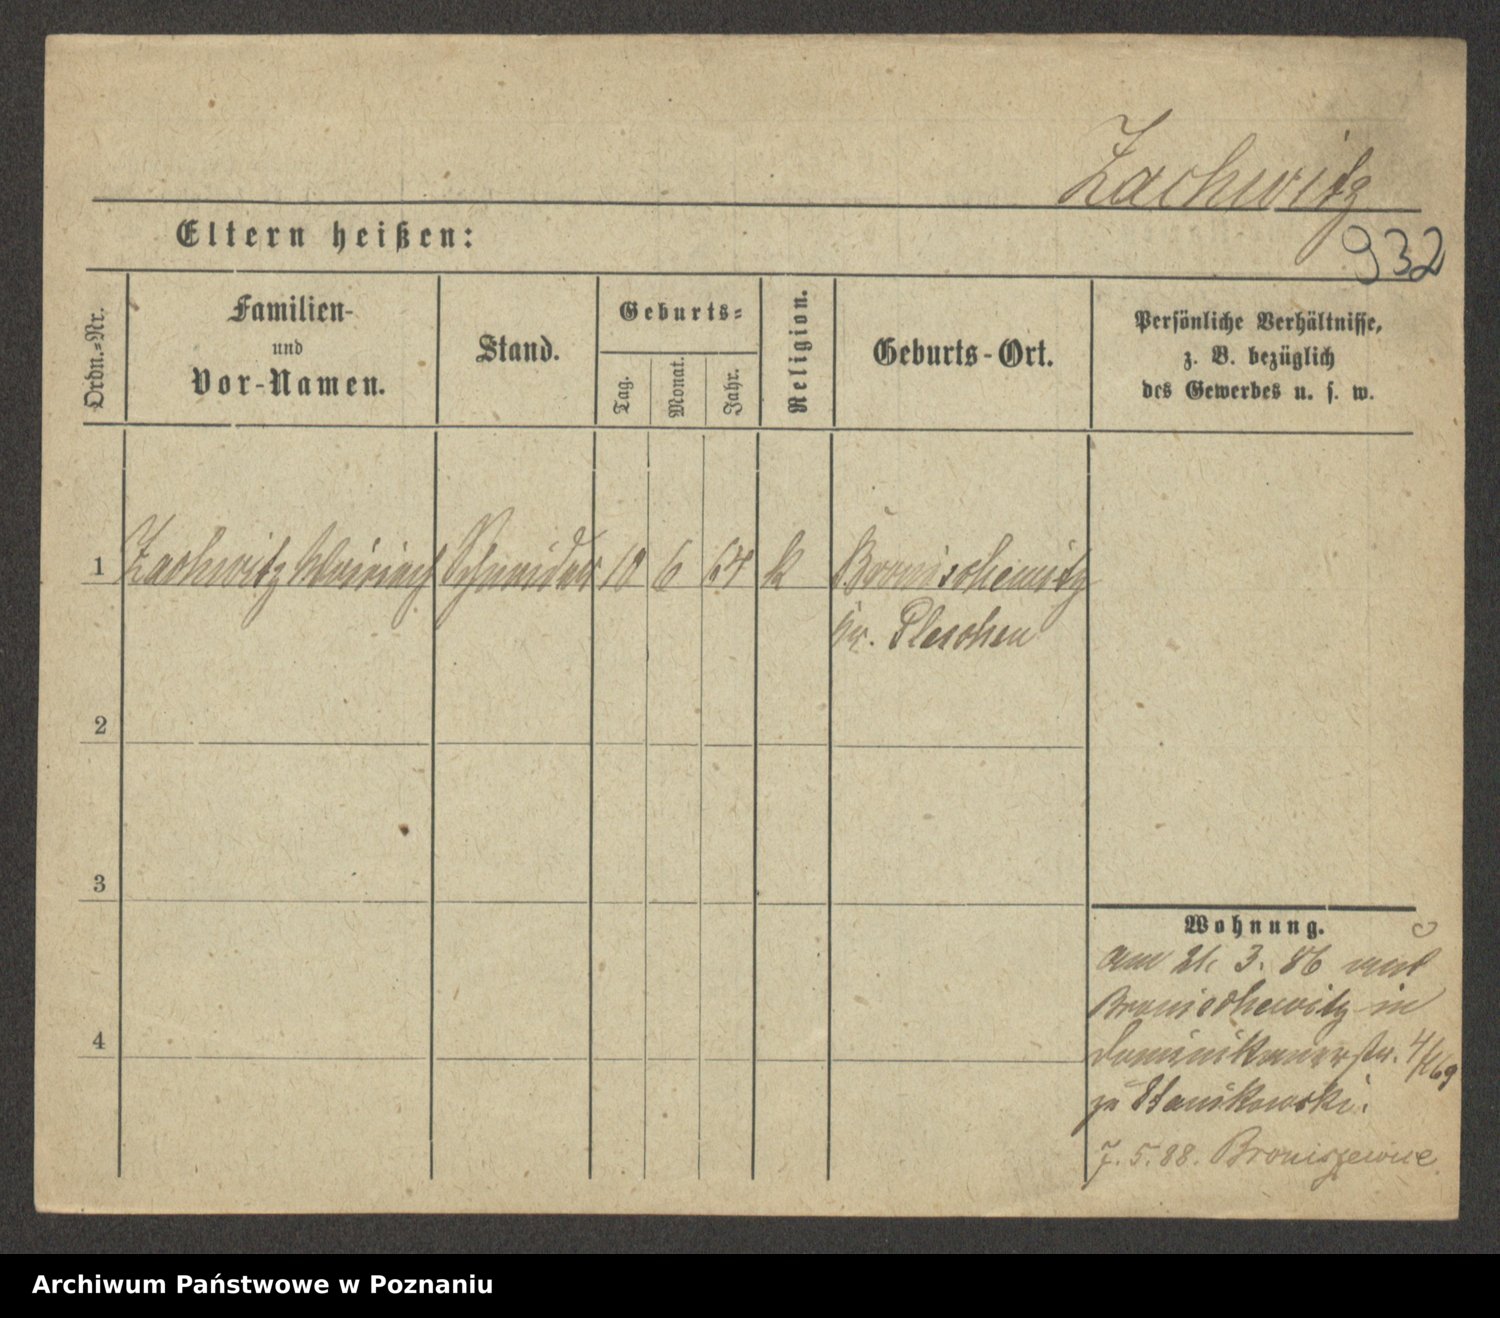 Zachwitz
932
Eltern heißen:
Ordn.=Nr.
Familien-
und
Vor-Namen.
Stand.
Geburts=
Tag.
Monat.
Jahr.
Religion.
Geburts-Ort.
Persönliche Verhältnisse,
z. B. bezüglich
des Gewerbes u. s. w.
1 Zachwitz Schneider 10 6 64 k Bronischewitz
Kr. Pleschen
2
3
4
Wohnung.
am 21. 3. 86 aus
Bronischewitz in
Dominikanerstr. 4
zu Stanikowski.
7. 5. 88. Broniszewice
Archiwum Państwowe w Poznaniu